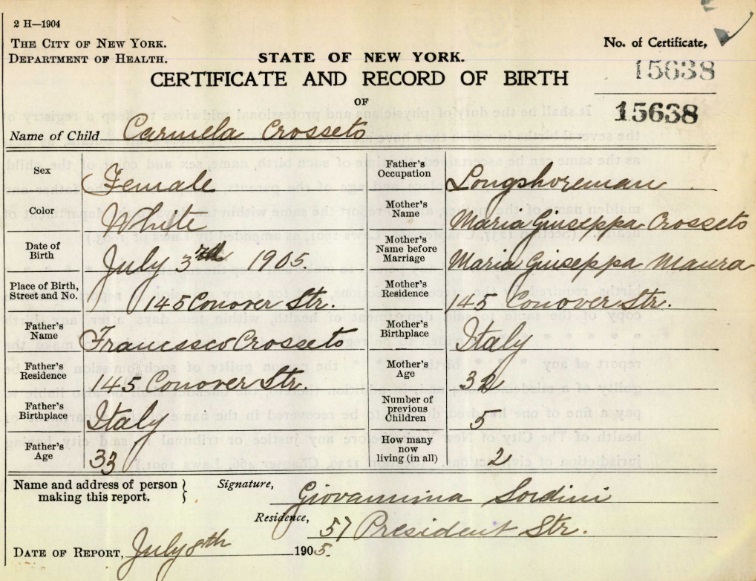 2 H—1904
THE CITY OF NEW YORK.
DEPARTMENT OF HEALTH.
STATE OF NEW YORK.
No. of Certificate,
CERTIFICATE AND RECORD OF BIRTH
15638
OF
15638
Name of Child Carmela Crosseto
Sex Female
Father's Occupation Longshoreman
Color White
Mother's Name Maria Giuseppa Crosseto
Date of Birth July 3th 1905.
Mother's Name before Marriage Maria Giuseppa Maura
Place of Birth, Street and No. 145 Conover Str.
Mother's Residence 145 Conover Str.
Father's Name Francesco Crosseto
Mother's Birthplace Italy
Father's Residence 145 Conover Str.
Mother's Age 32
Father's Birthplace Italy
Number of previous Children 5
Father's Age 33
How many now living (in all) 2
Name and address of person making this report.
Signature, Giovannina Sordini
Residence, 57 President Str.
DATE OF REPORT, July 8th 1905.